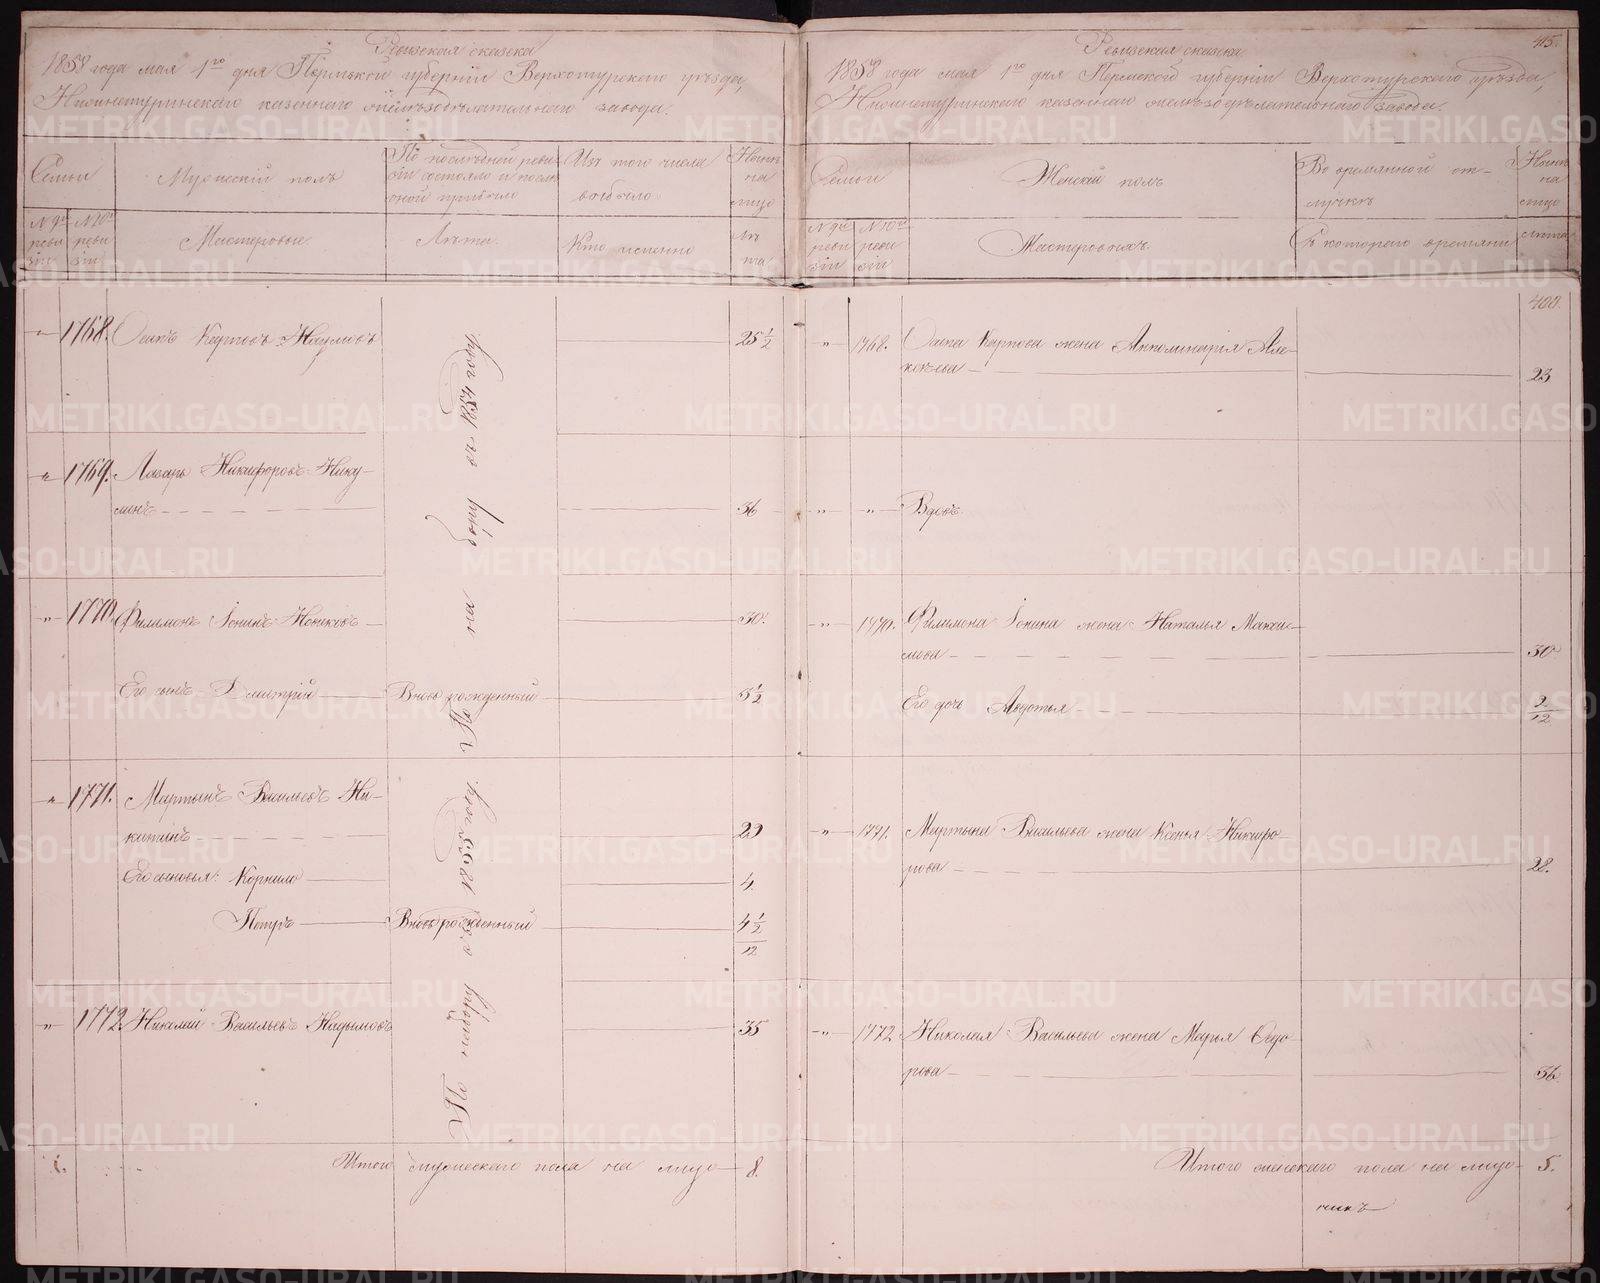 Ревизская сказка
1858 года мая 1го дня Пермской губернии Верхотурского уезда,
Нижнетуринскаго казеннаго железоделательнаго завода.
Семьи
Мужеский полъ
По последней реви-
зии состояло и после
оной прибыло
Изъ того числа
выбыло
Ныне
на
лицо
№ 9й
реви
зiи
№ 10й
реви
зiи
Мастеровые.
Лета.
Кто именно
Ле
та
" 1768. Осипъ Карповъ Наумовъ 25 1/2
" 1769. Лазарь Никифоровъ Нику-
линъ 36
" 1770. Филимонъ Iонинъ Новиковъ 30.
Его сынъ Дмитрiй Вновь рожденный 5 1/2
" 1771. Мартынъ Васильевъ Ни-
китинъ 29
Его сыновья: Корнило 4.
Петръ Вновь рожденный 4 1/2/12
" 1772. Николай Васильевъ Надымовъ 35
По набору съ 1855 году. По на бору съ 1854 году
Итого мужескаго пола на лицо 8.
Ревизская сказка
415.
1858 года мая 1го дня Пермской губернiи Верхотурскаго уезда,
Нижнетуринскаго казеннаго железоделательнаго завода.
Семьи
Женскiй полъ
Во временной от-
лучке
Ныне
на
лицо
№ 9й
реви
зiи
№ 10й
реви
зiи
Мастеровыхъ.
Съ котораго времяни
Лета
400.
" 1768. Осипа Карпова жена Аполинарiя Але-
ксеева 23
" " Вдовъ.
" 1770. Филимона Iонина жена Наталья Макси-
мова 30
Его дочь Авдотья 2/12
" 1771. Мартына Васильева жена Ксенья Никифо-
рова 28.
" 1772 Николая Васильева жена Марья Федо-
рова 36
Итого женскаго пола на лицо 5.
METRIKI.GASO-URAL.RU